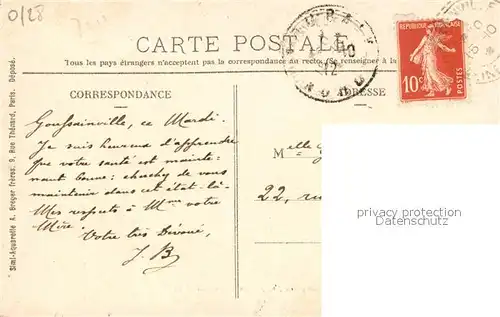 0/28
CARTE POSTALE
Tous les pays étrangers n'acceptent pas la correspondance au recto. (Se renseigner à la
CORRESPONDANCE
ADRESSE
REPUBLIQUE FRANÇAISE
10c
POSTES
10
12
NORD
Goussainville, ce Mardi.
Je suis heureux d'apprendre
que votre santé est mainte-
nant bonne: chachez de vous
maintenir dans cet état-là.
Mes respects à Mme votre
Mère.
Votre très Dévoué,
J. B
Melle
22, ru
privacy protection
Datenschutz
Simi-Aquarelle A. Breger frères, 9, Rue Thénard, Paris. Déposé.